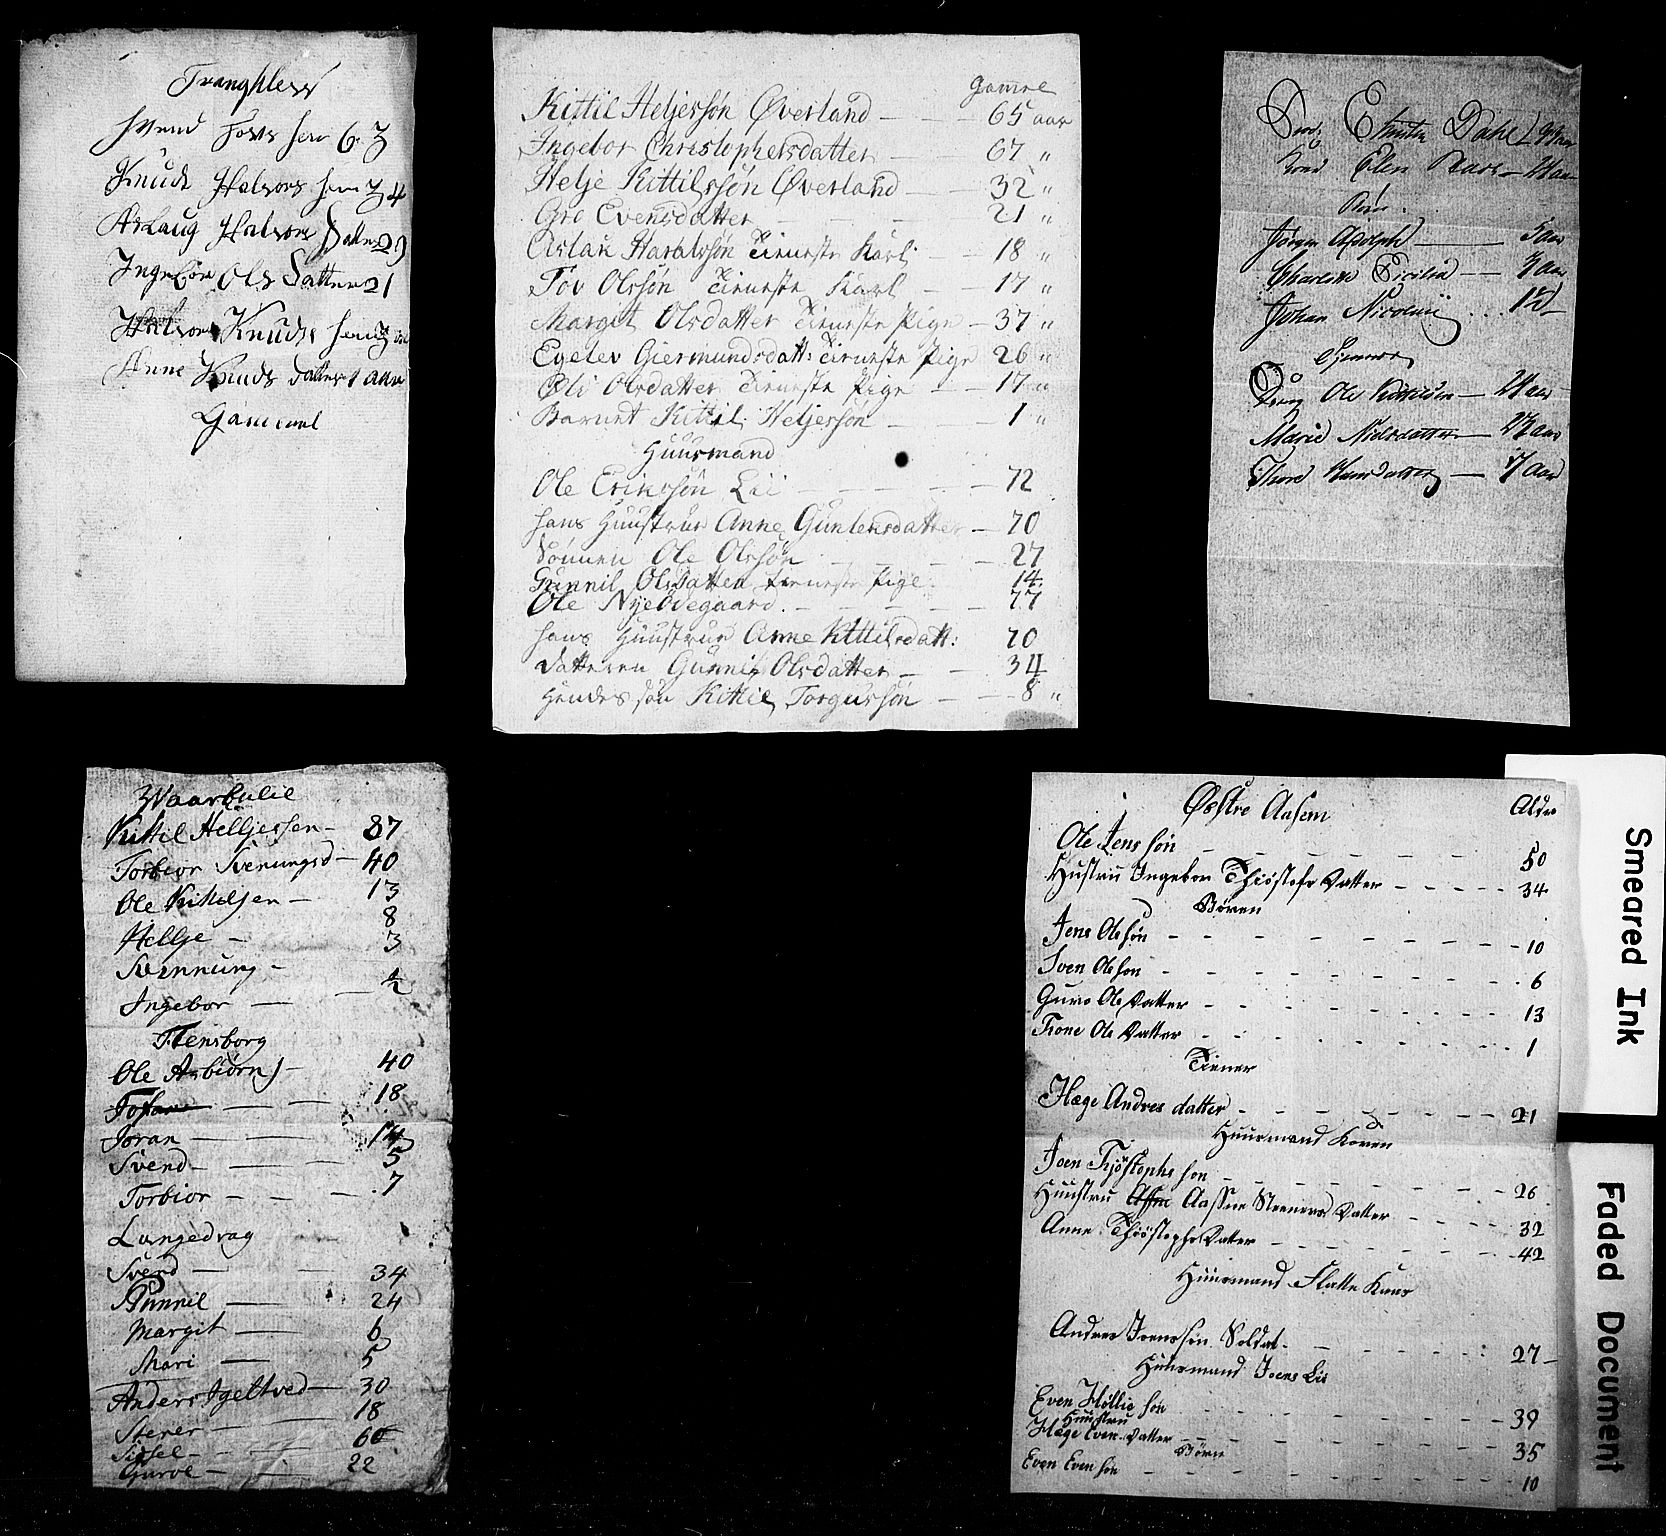 Knudt Halvors hen 34
Aslaug Halvors Datter 29
Ingebor Ols Datter 21
Halvor Knuds hen
Anne Knuds datter 1 aar
Gammel
Gamle
Kittil Heljersøn Øverland — — 65 aar
Ingebor Christophersdatter — — 67 "
Helje Kittilssøn Øverland — — 32 "
Gro Evensdatter — — — 21 "
Aslak Haraldssøn Tieneste Karl — — 18 "
Tov Olssøn Tieneste Karl — — 17 "
Margit Olsdatter Tieneste Pige — 37 "
Egelev Giermundsdatt: Tieneste Pige 26 "
Oli Olsdatter Tieneste Pige — 17 "
Barnet Kittil Heljersøn — — 1 "
Huusmand
Ole Erikssøn Lii — — — 72
hans Huustrue Anne Gunlensdatter — 70
Sønnen Ole Olssøn — — — 27
Gunnil Olsdatter tieneste Pige. 14.
Ole Nyeødegaard. — — — — 77
hans Huustrue Anne Kittilsdatt: 70
datteren Gunnil Olsdatter — — 34
Hendes søn Kittil Torgussøn — — 8 "
Dahl
Kone Elen
Jørgen Adolph — 5 aar
Cicilia — aar
Johan Nicolai ... 1½
Ole Kittilsen — 24 aar
Marie Nielsdatter — 27 aar
Thore Hansdatter — 7 aar
Waarkulie
Kittil Helljessen — 37
Torbior Svenungsd — 40
Ole Kittelsen — 13
Hellje — 8
Svennung — 3
Ingebor — — ½
Flensborg
Ole Asbiørns — 40
— — 18
Joran — — 14
Svend — — 5
Torbior — — — 7
Langedrag
Svend — — 34
Gunnil — — 24
Margit — 6
Mari — 5
Anders Igeltved — 30
Sterer — — 18
Sissel — — 60
Gurve — — 22
Østre Aasem Alder
Ole Jens søn — — — 50
Hustru Ingebor Thiøstofs Datter - - - - 34
Børen
Jens Ols søn - - - - - - 10
Sven Ols søn - - - - - - 6
Guro Ols Datter - - - - - - 13
Tone Ols Datter - - - - - - 1
Tiener
Hæge Andres datter - - - - - - 21
Huusmand Koven
Joen Tiøstophs søn - - - - - - 26
Huustru Aasne Steeners Datter - - - - 32
Anne Thiøstophs Datter - - - - - 42
Huusmand Slatte Kaas
Andres Joenssøn Soldat - - - - - 27 -
Huusmand Joens Lii
Even Høllie søn - - - - - - 39
Huustru
Hæge Evens Datter - - - - - - 35
Børen
Even Even søn - - - - - - 10
Smeared Ink
Faded Document